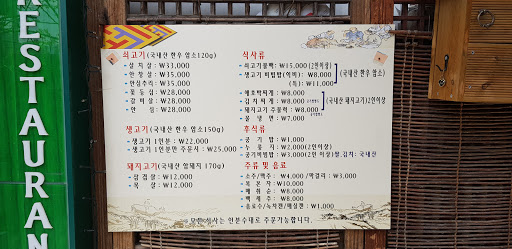 RESTAURAN
쇠고기(국내산 한우 암소120g)
- 살 치 살 : ₩33,000
- 안 창 살 : ₩35,000
- 안심추리 : ₩35,000
- 꽃 등 심 : ₩28,000
- 갈 비 살 : ₩28,000
- 안 심 : ₩28,000
생고기(국내산 한우 암소150g)
- 생고기 1인분 : ₩22,000
- 생고기 1인분 만 주문시 : ₩25,000
돼지고기(국내산 암퇘지 170g)
- 삼 겹 살 : ₩12,000
- 목 살 : ₩12,000
식사류
- 쇠고기불백 : ₩15,000(2인이상)
- 생고기 비빔밥(익비) : ₩8,000 (국내산 한우 암소)
(특) : ₩11,000
- 애호박찌개 : ₩8,000
- 김 치 찌 개 : ₩8,000 (국내산 돼지고기)2인이상
- 돼지고기 주물럭 : ₩8,000
- 물 냉 면 : ₩7,000
후식류
- 공 기 밥 : ₩1,000
- 누 룽 지 : ₩2,000(2인이상)
- 공기비빔밥 : ₩3,000(2인 이상)쌀,김치: 국내산
주류 및 음료
- 소주/맥주 : ₩4,000/막걸리 : ₩3,000
- 복 분 자 : ₩10,000
- 매 취 순 : ₩8,000
- 백 세 주 : ₩8,000
- 음료수/녹차캔/매실캔 : ₩1,000
모든 식사는 인분수대로 주문가능합니다.